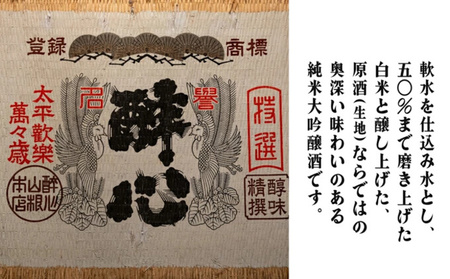 登録 商標
名譽
醉心
特選
醇味
精撰
太平歡樂
萬々歳
醉心
山根
本店
軟水を仕込み水とし、
五〇%まで磨き上げた
白米と醸し上げた、
原酒(生地)ならではの
奥深い味わいのある
純米大吟醸酒です。